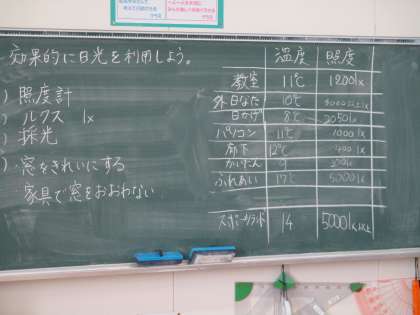 効果的に日光を利用しよう。
) 照度計
) ルクス lx
) 採光
)・窓をきれいにする
家具で窓をおおわない
温度 照度
教室 11℃ 1200lx
外日なた 10℃
日かげ 8℃ 2050lx
パソコン 11℃ 1000lx
廊下 12℃ 400lx
かいだん 9 200lx
ふれあい 17℃ 5000lx
スポーツランド 14 5000lx以上